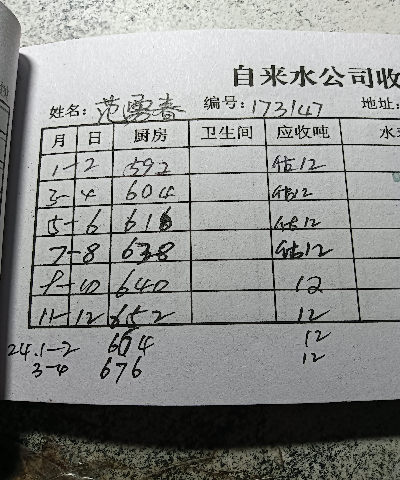 自来水公司收
姓名: 范勇春 编号: 173147 地址:
月 日 厨房 卫生间 应收吨 水
1-2 592 估12
3-4 604 估12
5-6 616 估12
7-8 638 估12
9-10 640 12
11-12 652 12
24.1-2 664 12
3-4 676 12